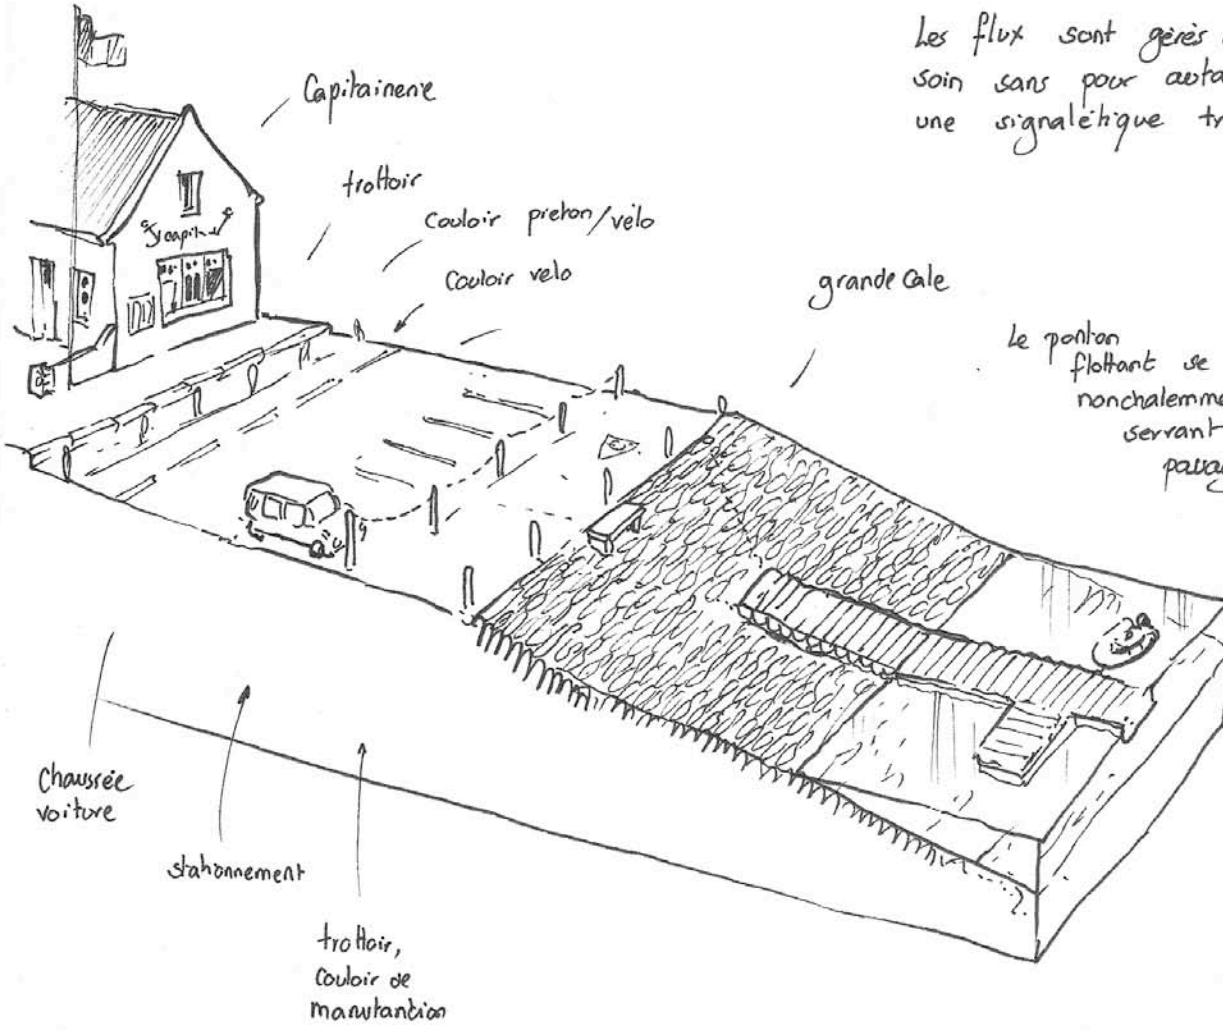 Les flux sont gérés
soin sans pour auta
une signalétique tr
Capitainerie
trottoir
couloir pieton/vélo
couloir velo
grande cale
Le ponton
flottant se
nonchalemme
servant
capit
chaussée
voiture
stationnement
trottoir,
couloir de
manutantion